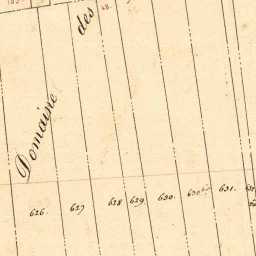 des
Domaine
626. 627 628 629 630. 630bis 631.